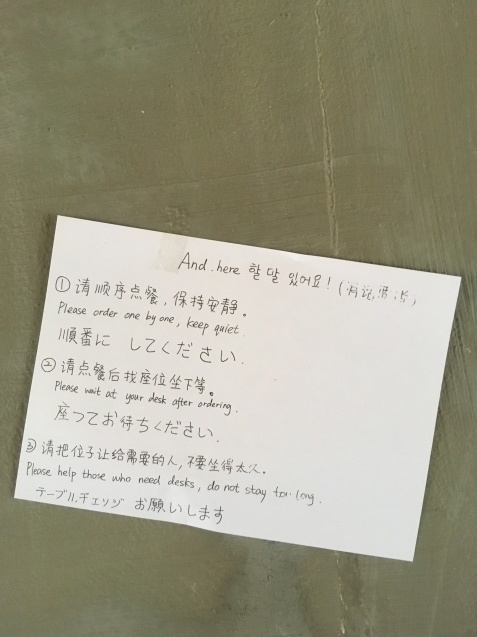 And.here 할말 있어요! (
① 请顺序点餐，保持安静。
Please order one by one, keep quiet.
順番に してください.
② 请点餐后找座位坐下等。
Please wait at your desk after ordering.
座ってお待ちください.
③ 请把位子让给需要的人，不要坐得太久。
Please help those who need desks, do not stay too long.
テーブル.チェンジ お願いします